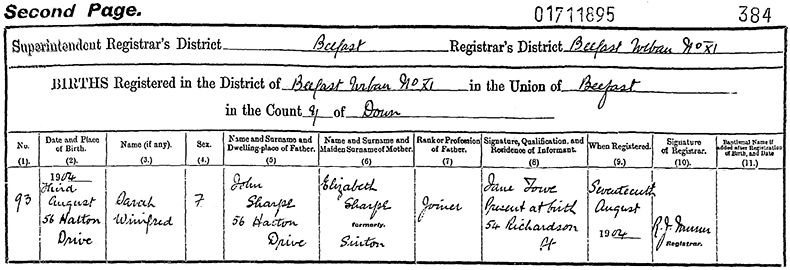 Second Page. 01711895 384
Superintendent Registrar's District Belfast Registrar's District Belfast Urban No XI
BIRTHS Registered in the District of Belfast Urban No XI in the Union of Belfast
in the County of Down
No. (1).
Date and Place of Birth. (2).
Name (if any). (3.)
Sex. (4.)
Name and Surname and Dwelling-place of Father. (5)
Name and Surname and Maiden Surname of Mother. (6)
Rank or Profession of Father. (7)
Signature, Qualification, and Residence of Informant. (8)
When Registered. (9.)
Signature of Registrar. (10.)
Baptismal Name if added after Registration of Birth, and Date (11.)
93
1904
Third
August
56 Hatton
Drive
Sarah
Winifred
F
John
Sharpe
56 Hatton
Drive
Elizabeth
Sharpe
formerly.
Sinton
Joiner
Jane Lowe
Present at birth
54 Richardson
St
Seventeenth
August
1904
Registrar.